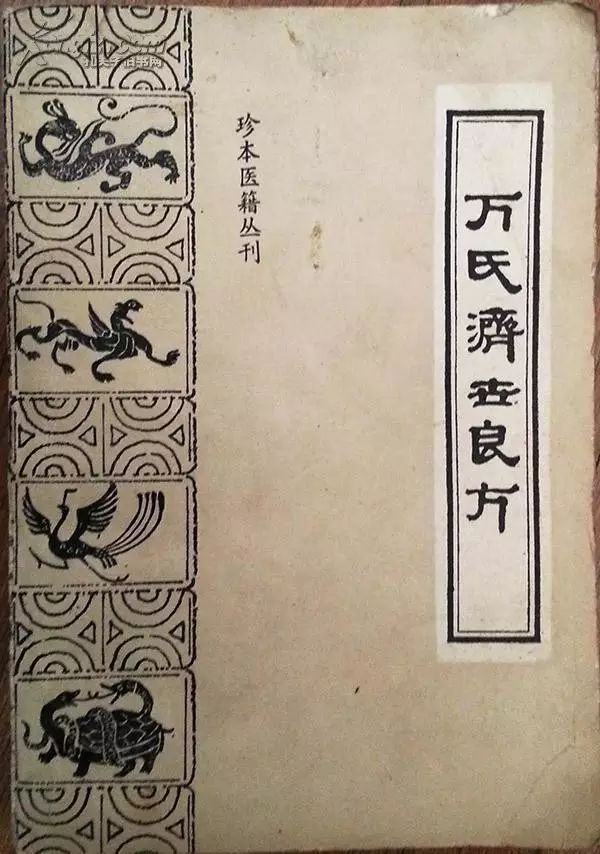 万氏濟世良方
珍本医籍丛刊
孔夫子旧书网